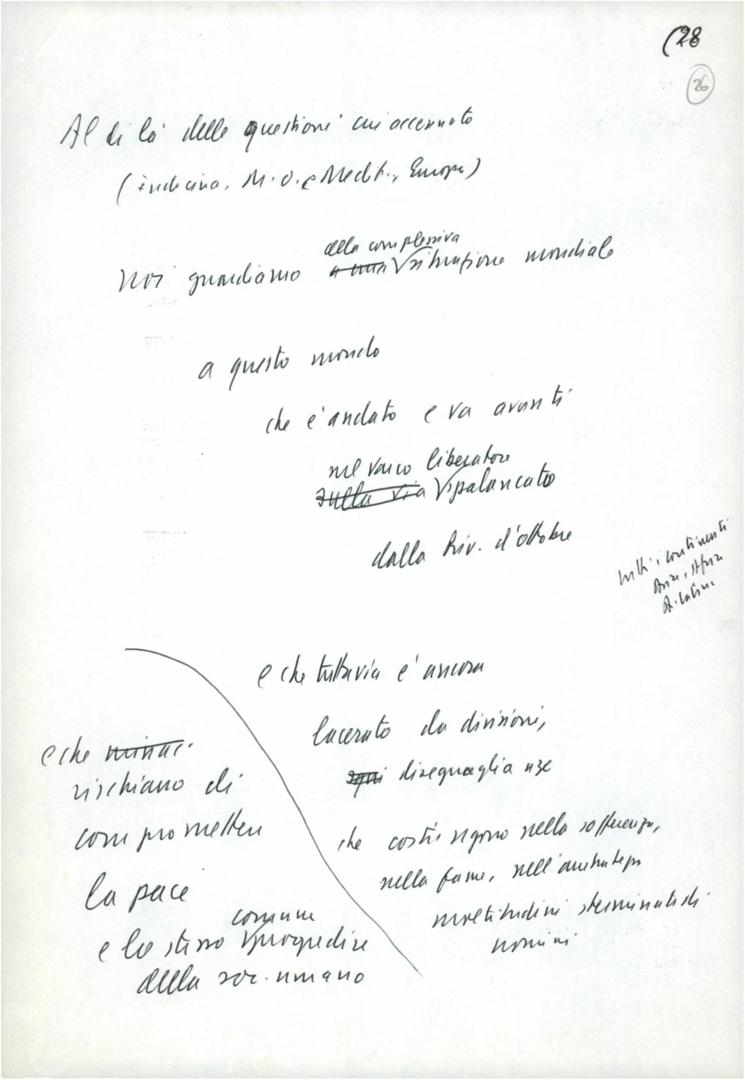 (28
26
Al di là delle questioni cui accennato
(Indocina, M.O. e Medit., Europa)
della complessiva
noi guardiamo a una situazione mondiale
a questo mondo
che è andato e va avanti
nel varco liberatore
sulla via spalancato
dalla Riv. d'ottobre
tutti i continenti
Asia, Africa
A. Latina
e che tuttavia è ancora
lacerato da divisioni,
disegguaglianze
che costringono nella sofferenza,
nella fame, nell'
moltitudini sterminate di
uomini
e che minac
rischiano di
compromettere
la pace
comune
e lo stesso progredire
della soc. umana